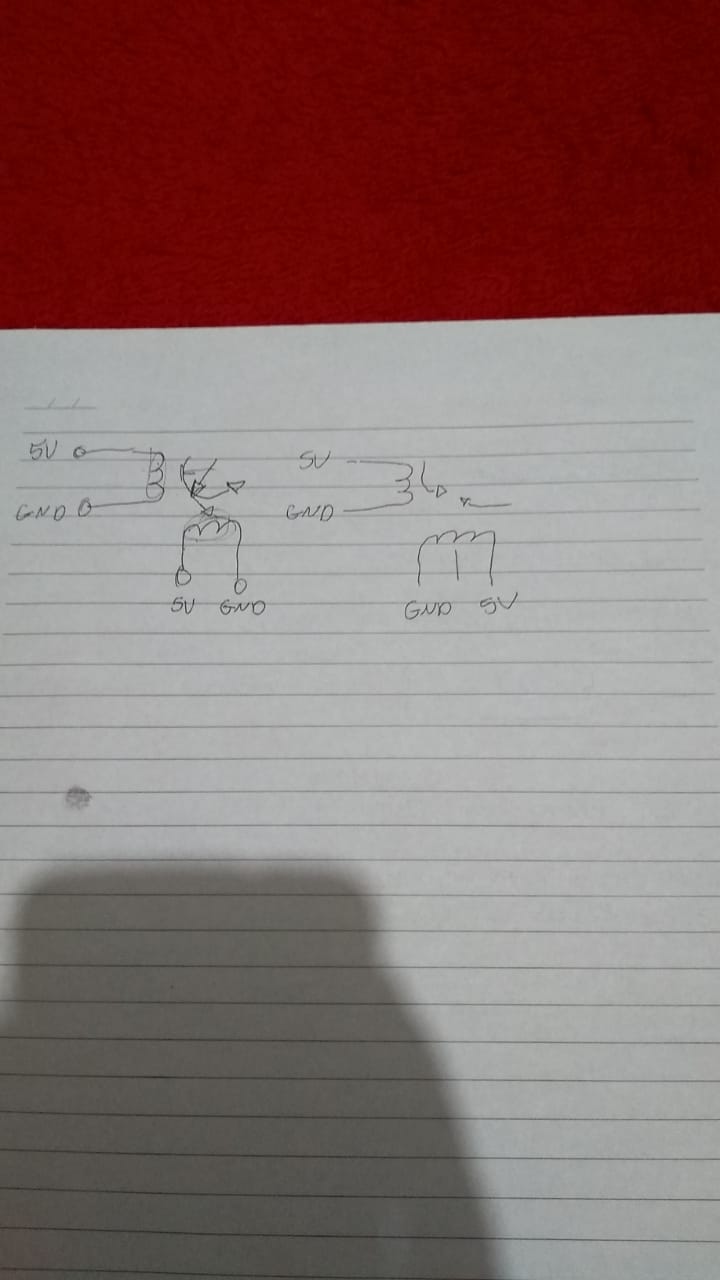 5V
GND
5V GND
5V
GND
GND 5V